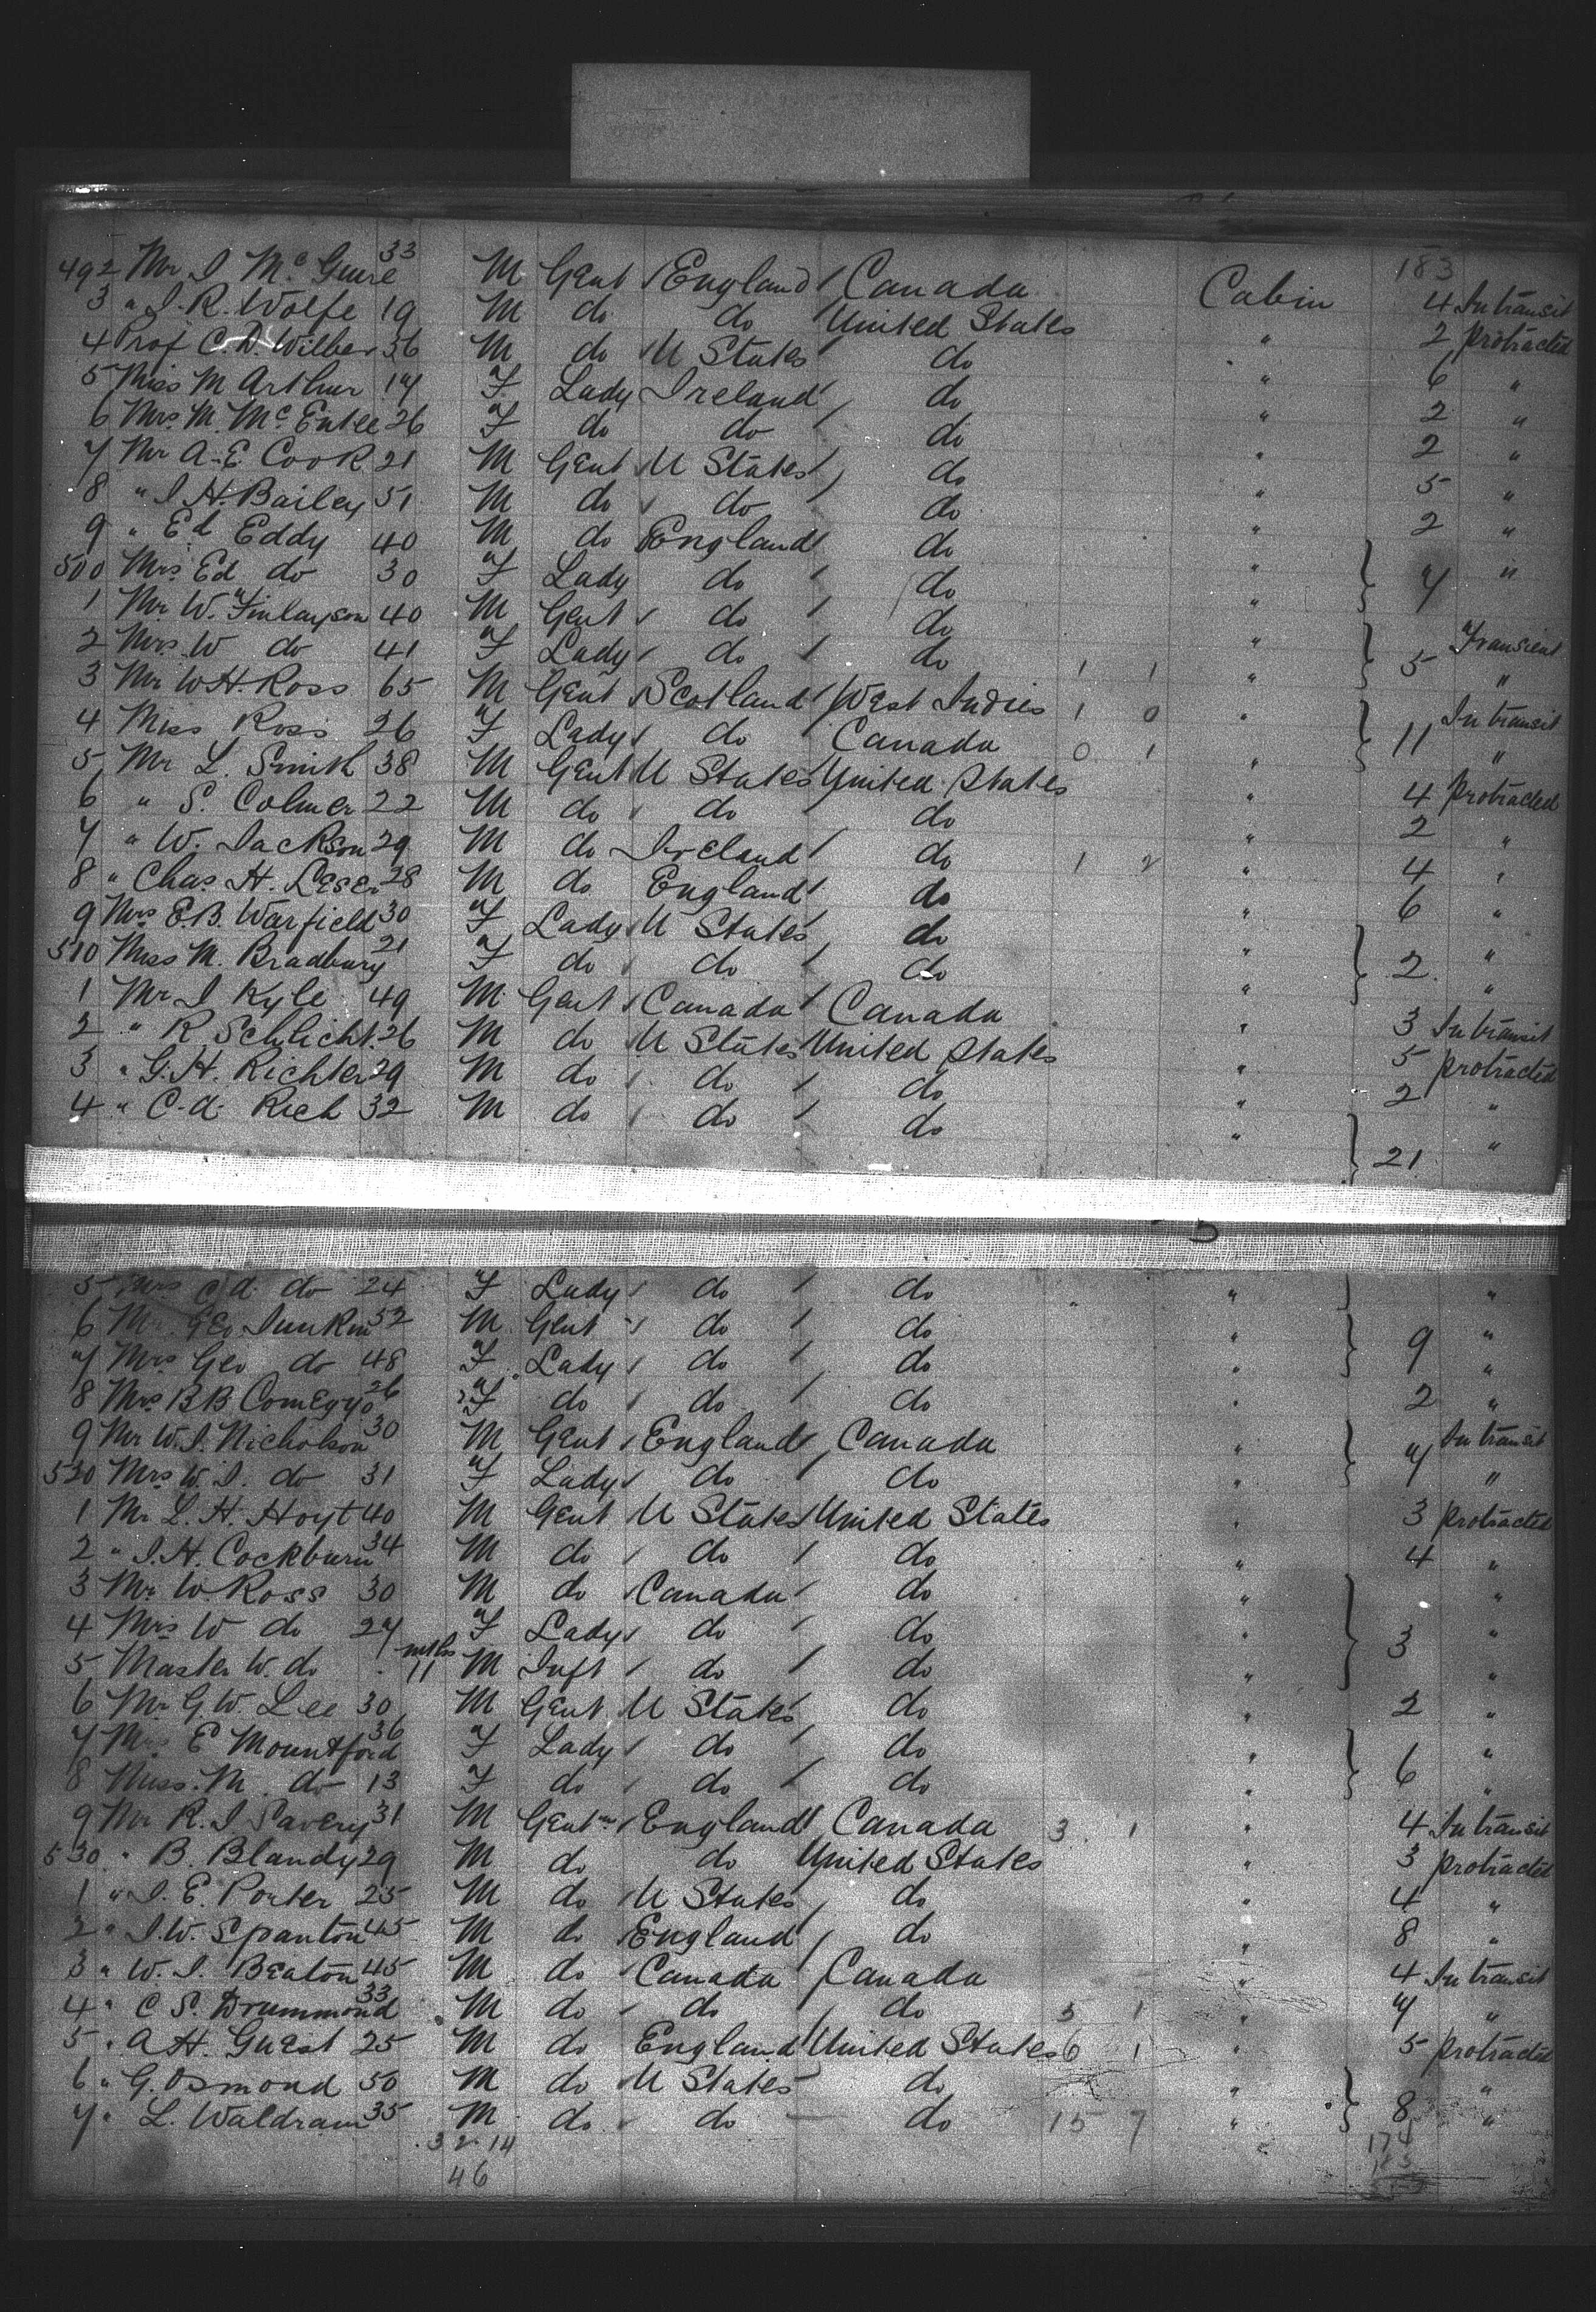 183
492 Mr J McGuire 33 M Gent England Canada Cabin 4 In transit
3 " J. R. Wolfe 19 M do do United States " 2 protracted
4 Prof C. D. Wilber 36 M do U States do " 6 "
5 Miss M Arthur 17 F Lady Ireland do " 2 "
6 Mrs M. McEntee 26 F do do do " 2 "
7 Mr A. E. Cook 21 M Gent U States do " 5 "
8 " J. H. Bailey 51 M do do do " 2 "
9 " Ed Eddy 40 M do England do " "
500 Mrs Ed do 30 F Lady do do " 7
1 Mr W. Finlayson 40 M Gent do do " Transient
2 Mrs W do 41 F Lady do do 1 1 " 5 "
3 Mr W H. Ross 65 M Gent Scotland West Indies 1 0 " In transit
4 Miss Ross 26 F Lady do Canada 0 1 " 11 "
5 Mr L. Smith 38 M Gent U States United States " 4 protracted
6 " S. Colmer 22 M do do do " 2 "
7 " W. Jackson 29 M do Ireland do 1 2 " 4 "
8 " Chas. H. Leser 28 M do England do " 6 "
9 Mrs E. B. Warfield 30 F Lady U States do " "
510 Miss M. Bradbury 21 F do do do " 2 "
1 Mr J Kyle 49 M Gent Canada Canada " 3 In transit
2 " R. Schlicht 26 M do U States United States " 5 protracted
3 " G. H. Richter 29 M do do do " 2 "
4 " C. A. Rich 32 M do do do " 21 "
5 Mrs C A. do 24 F Lady do do " "
6 Mr Geo Junkin 52 M Gent do do " "
7 Mrs Geo do 48 F Lady do do " 9 "
8 Mrs B B Comegys 26 F do do do " 2 "
9 Mr W. J. Nicholson 30 M Gent England Canada " In transit
520 Mrs W. J. do 31 F Lady do do " 7 "
1 Mr L. H. Hoyt 40 M Gent U States United States " 3 protracted
2 " J. H. Cockburn 34 M do do do " 4 "
3 Mr W Ross 30 M do Canada do " "
4 Mrs W do 27 F Lady do do " 3 "
5 Master W. do 11 mths M Inft do do " "
6 Mr G. W. Lee 30 M Gent U States do " 2 "
7 Mrs E Mountford 36 F Lady do do " "
8 Miss. M. do 13 F do do do " 6 "
9 Mr R. J Savery 31 M Gent England Canada 3 1 " 4 In transit
530 " B. Blandy 29 M do do United States " 3 protracted
1 " J. E. Porter 25 M do U States do " 4 "
2 " J. W. Spanton 45 M do England do " 8 "
3 " W. J. Beaton 45 M do Canada Canada " 4 In transit
4 " C S. Drummond 33 M do do do 5 1 " 7 "
5 " A H. Guest 25 M do England United States 6 1 " 5 protracted
6 " G. Osmond 50 M do U States do " "
7 " L. Waldram 35 M do do do 15 7 " 8 "
32 14 174
46